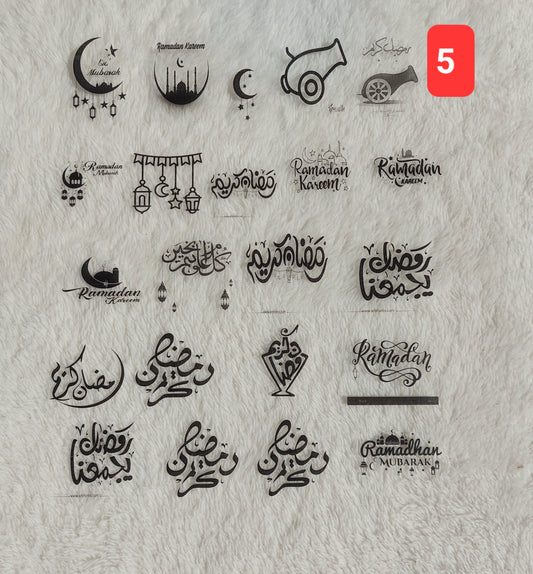 Eid
Mubarak
Ramadan Kareem
رمضان كريم
5
Ramadan
Mubarak
رمضان كريم
Ramadan
Kareem
Ramadan
KAREEM
Ramadan
Kareem
كل عام وأنتم بخير
رمضان كريم
رمضان
يجمعنا
رمضان كريم
رمضان
كريم
رمضان
كريم
Ramadan
رمضان
يجمعنا
رمضان
كريم
رمضان
كريم
Ramadhan
MUBARAK